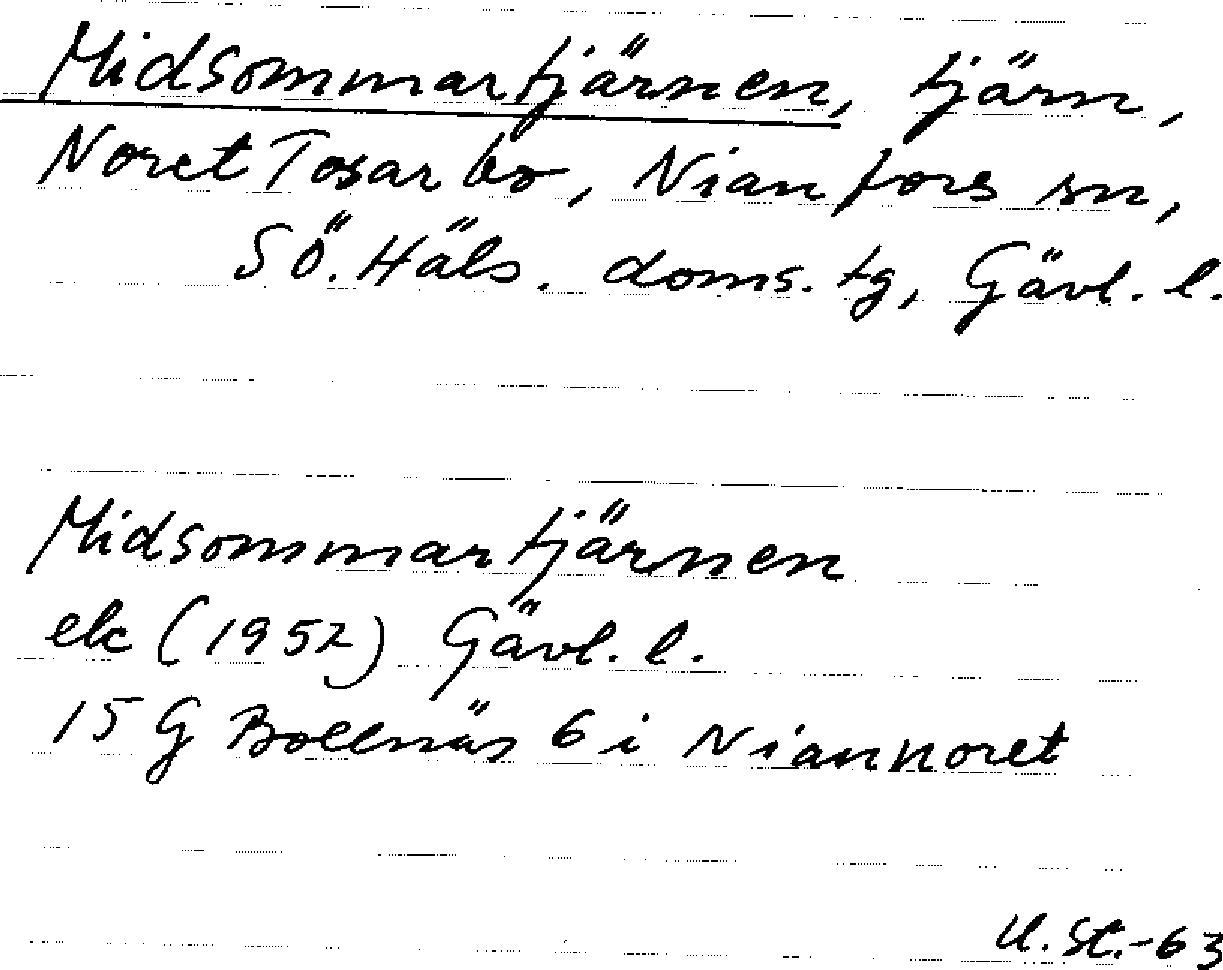 Midsommartjärnen, tjärn,
Noret Tosarbo, Nianfors sn,
SÖ. Häls. doms. tg, Gävl. l.
Midsommartjärnen
ek (1952) Gävl. l.
15 G Bollnäs 6 i Niannoret
U. St.-63